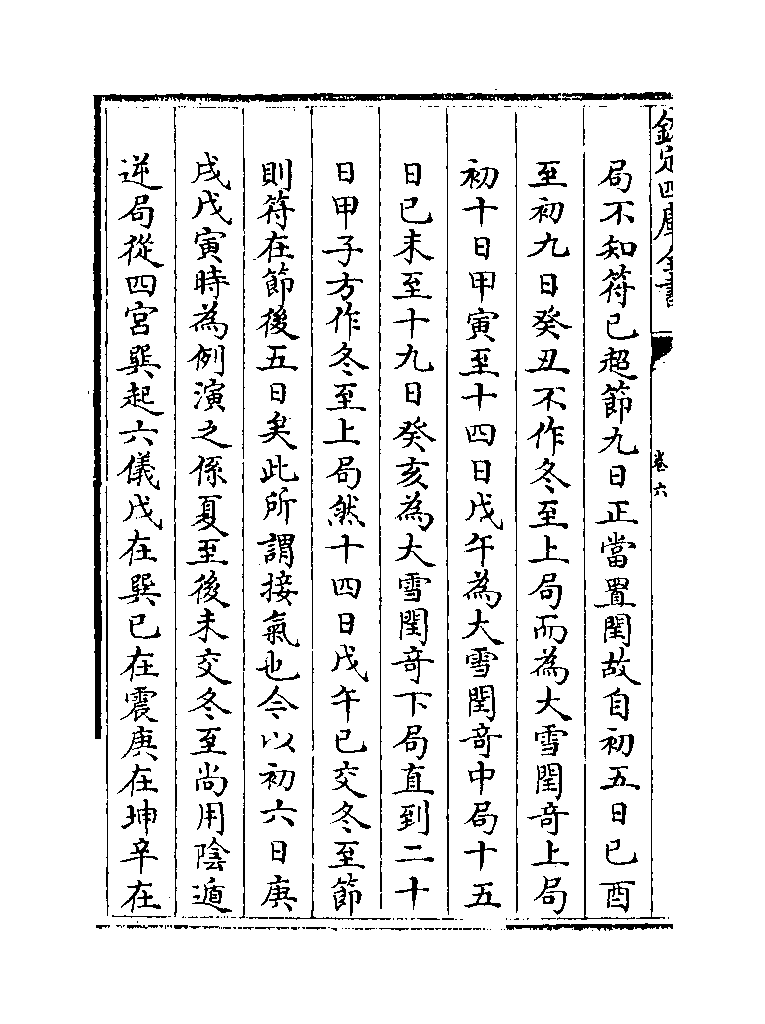 欽定四庫全書
卷六
局不知符已超節九日正當置閏故自初五日已酉
至初九日癸丑不作冬至上局而為大雪閏竒上局
初十日甲寅至十四日戊午為大雪閏竒中局十五
日已未至十九日癸亥為大雪閏竒下局直到二十
日甲子方作冬至上局然十四日戊午已交冬至節
則符在節後五日矣此所謂接氣也今以初六日庚
戌戊寅時為例演之係夏至後未交冬至尚用陰遁
逆局從四宮巽起六儀戊在巽已在震庚在坤辛在